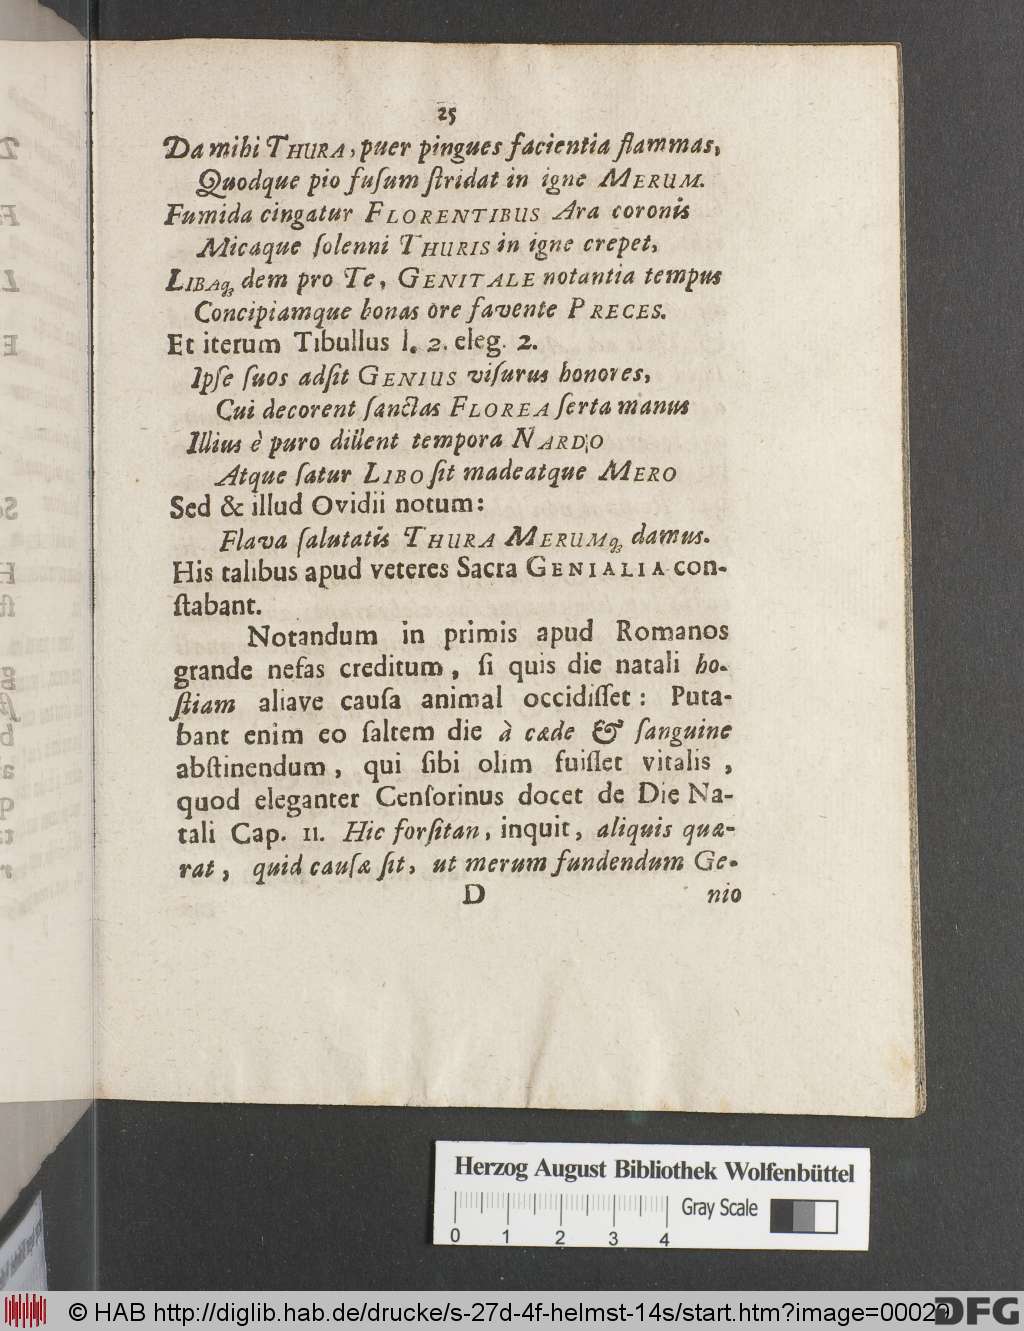 25
Da mihi THURA, puer pingues facientia flammas,
Quodque pio fuſum ſtridat in igne MERUM.
Fumida cingatur FLORENTIBUS Ara coronis
Micaque ſolenni THURIS in igne crepet,
LIBAq; dem pro Te, GENITALE notantia tempus
Concipiamque bonas ore favente PRECES.
Et iterum Tibullus l. 2. eleg. 2.
Ipſe ſuos adſit GENIUS viſurus honores,
Cui decorent ſanctas FLOREA ſerta manus
Illius è puro diſtent tempora NARDO
Atque ſatur LIBO ſit madeatque MERO
Sed & illud Ovidii notum:
Flava ſalutatis THURA MERUMq; damus.
His talibus apud veteres Sacra GENIALIA con-
ſtabant.
Notandum in primis apud Romanos
grande nefas creditum, ſi quis die natali ho-
ſtiam aliave cauſa animal occidiſſet: Puta-
bant enim eo ſaltem die à cæde & ſanguine
abſtinendum, qui ſibi olim fuiſſet vitalis,
quod eleganter Cenſorinus docet de Die Na-
tali Cap. 11. Hic forſitan, inquit, aliquis quæ-
rat, quid cauſæ ſit, ut merum fundendum Ge-
D nio
Herzog August Bibliothek Wolfenbüttel
Gray Scale
0 1 2 3 4
© HAB http://diglib.hab.de/drucke/s-27d-4f-helmst-14s/start.htm?image=00029
DFG